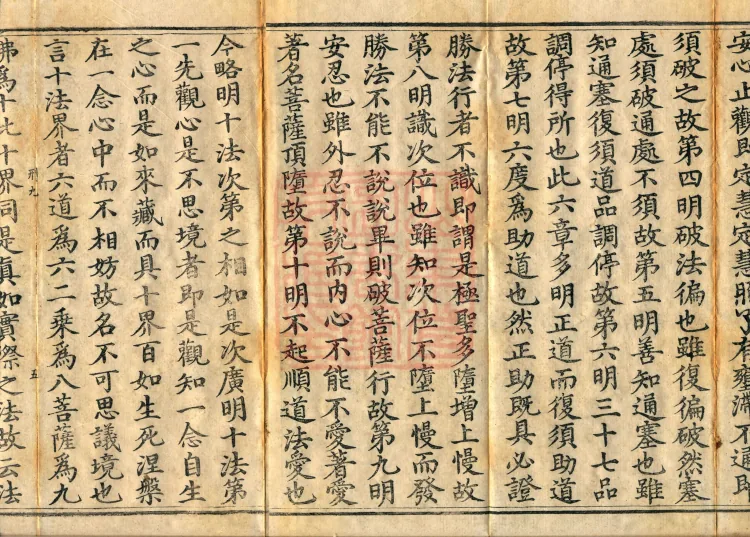 安心止觀即定慧定慧照有壅滯不通即
須破之故第四明破法徧也雖復徧破然塞
處須破通處不須故第五明善知通塞也雖
知通塞復須道品調停故第六明三十七品
調停得所也此六章多明正道而復須助道
故第七明六度爲助道也然正助旣具必證
勝法行者不識即謂是極聖多墮增上慢故
第八明識次位也雖知次位不墮上慢而發
勝法不能不說說畢則破菩薩行故第九明
安忍也雖外忍不說而内心不能不愛著愛
著名菩薩頂墮故第十明不起順道法愛也
今略明十法次第之相如是次廣明十法第
一先觀心是不思境者即是觀知一念自生
之心而是如來藏而具十界百如生死涅槃
在一念心中而不相妨故名不可思議境也
言十法界者六道爲六二乘爲八菩薩爲九
九 五
佛爲十此十界同是眞如實際之法故云法